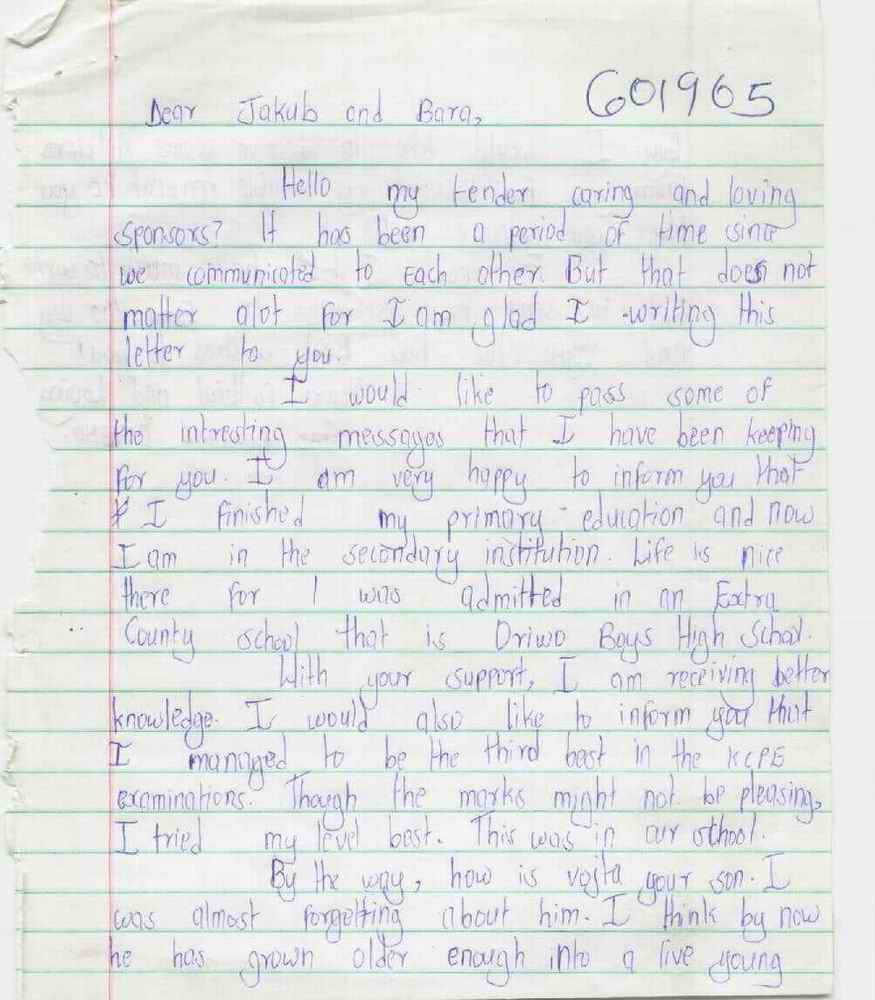 601965
Dear Jakub and Bara,
Hello my tender caring and loving
sponsors? It has been a period of time since
we communicated to each other. But that does not
matter alot for I am glad I writing this
letter to you.
I would like to pass some of
the intresting messages that I have been keeping
for you. I am very happy to inform you that
I finished my primary education and now
I am in the secondary institution. Life is nice
there for I was admitted in an Extra
County school that is Oriwo Boys High School.
With your support, I am receiving better
knowledge. I would also like to inform you that
I managed to be the third best in the KCPE
examinations. Though the marks might not be pleasing,
I tried my level best. This was in our school.
By the way, how is vojta your son. I
was almost forgetting about him. I think by now
he has grown older enough into a live young